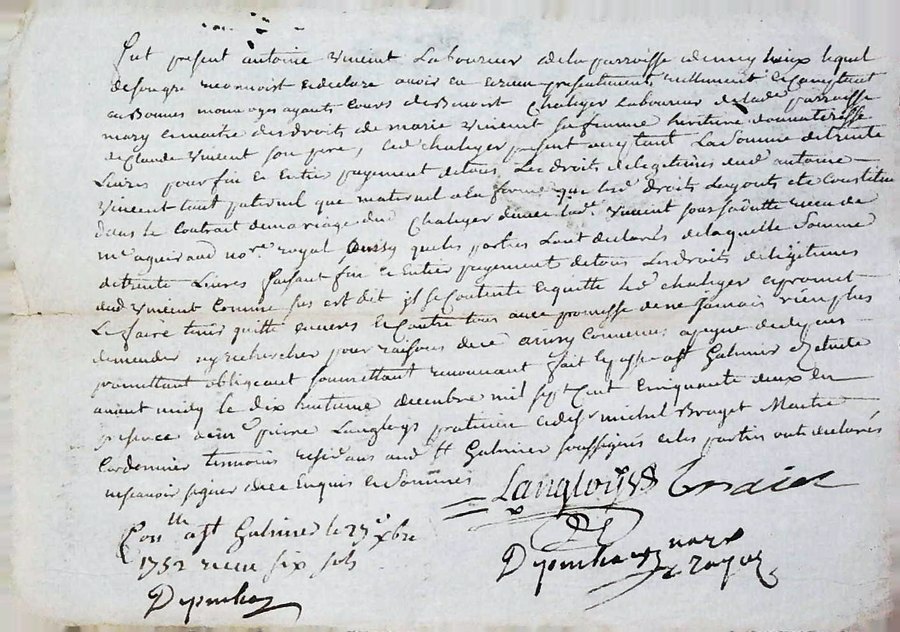 fut present antoine Vincent Laboureur de la parroisse lequel
de son gre reconnoist et declare avoir eu et receu presentement reellement et comptant
en Bonnes monnoyes ayants Cours de Benoit Chaleyer Laboureur de lad parroisse
mary et maitre des droits de marie Vincent sa femme heritiere donnateresse
de Claude Vincent son pere, led chaleyer present acceptant La Somme de trente
Livres pour fin et Entier payement de tous Les droits de legitimes dud antoine
Vincent tant paternel que maternel a la forme que les droits Luy ont ete Constitue
dans le Contrat de mariage du Chaleyer avec lad Vincent sous saditte receu de
me no.re royal que les parties L'ont declarés de laquelle Somme
de trente Livres faisant fin et Entier payement de tous Les droits de legitimes
dud Vincent Comme sus est dit il se Contente et quitte led chaleyer et promet
Le faire tenir quitte envers et Contre tous avec promesse de ne jamais rien plus
demander ny rechercher pour raisons de ce ainsy Convenu a peyne de depens
promettant obligeant soumettant renonçant fait et passé a st Galmier Etude
avant midy le dix huitieme decembre mil sept Cent Cinquante deux En
presence de me pierre Langloys praticien et de sr michel Maitre
Cordonnier temoins residans aud st Galmier soussignés et les parties ont declarés
ne scavoir signer de ce Enquis et Sommés
Langloys
Con.lle a st Galmier le 27e xbre
1752 receu six sols
no.re royal